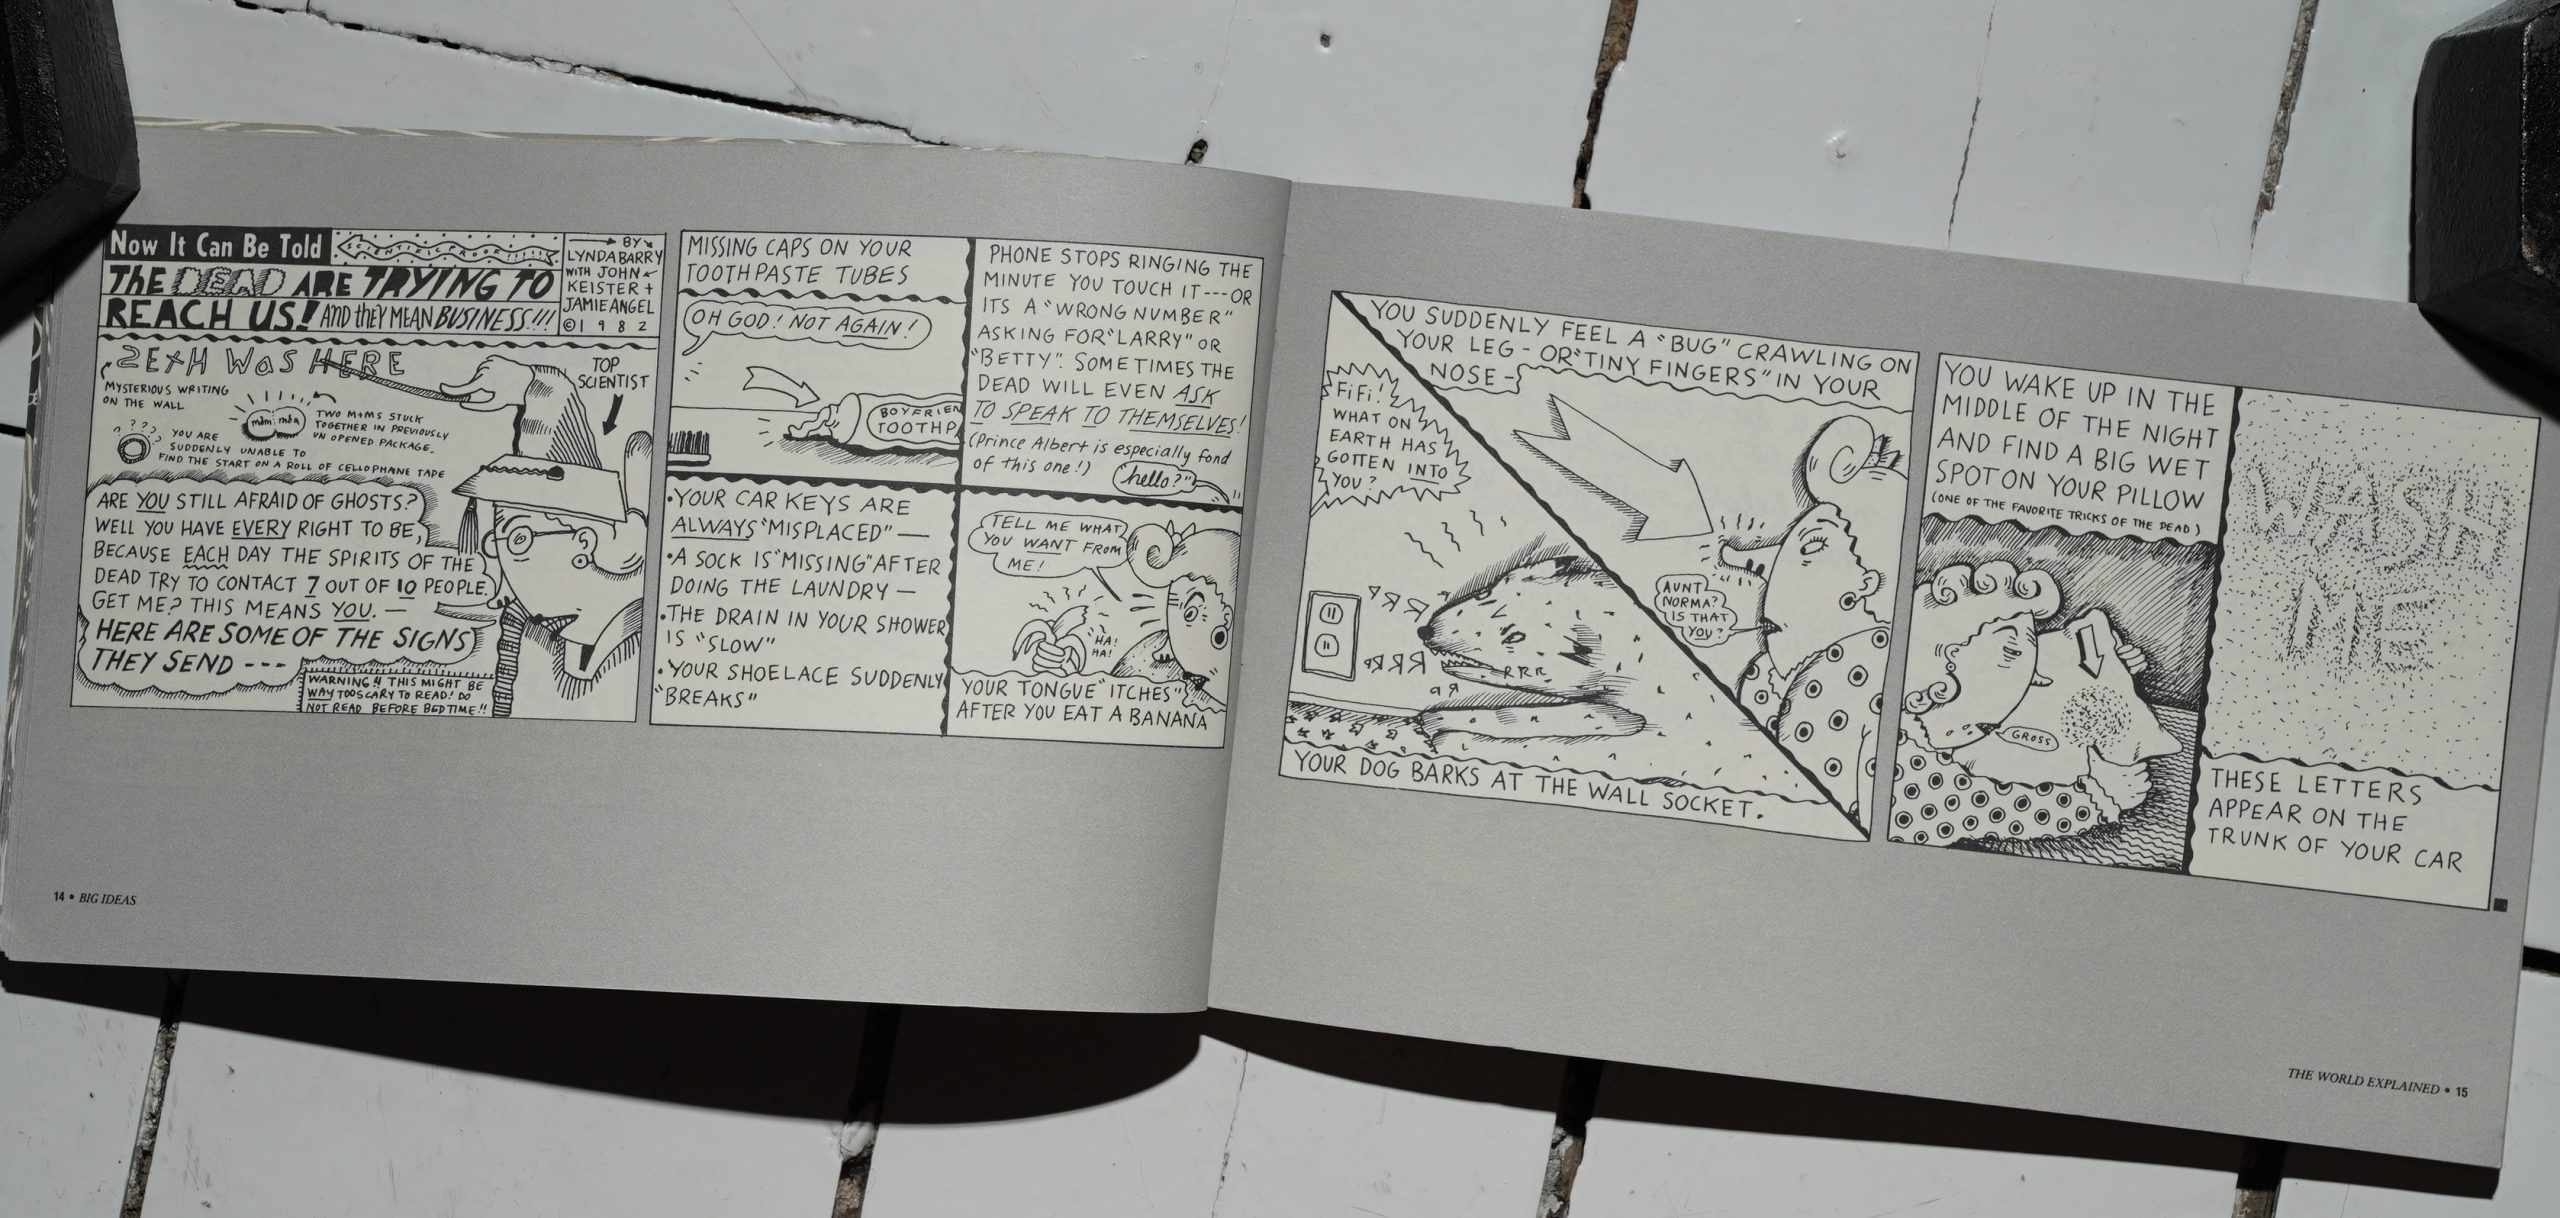 Now It Can Be Told
THE DEAD ARE TRYING TO
REACH US! AND THEY MEAN BUSINESS!!!
BY
LYNDA BARRY
WITH JOHN
KEISTER +
JAMIE ANGEL
© 1982
SEXH WAS HERE
MYSTERIOUS WRITING
ON THE WALL
TOP
SCIENTIST
m&m m&m
TWO M+MS STUCK
TOGETHER IN PREVIOUSLY
UN OPENED PACKAGE.
???
YOU ARE
SUDDENLY UNABLE TO
FIND THE START ON A ROLL OF CELLOPHANE TAPE
ARE YOU STILL AFRAID OF GHOSTS?
WELL YOU HAVE EVERY RIGHT TO BE,
BECAUSE EACH DAY THE SPIRITS OF THE
DEAD TRY TO CONTACT 7 OUT OF 10 PEOPLE.
GET ME? THIS MEANS YOU. —
HERE ARE SOME OF THE SIGNS
THEY SEND ---
WARNING!! THIS MIGHT BE
WAY TOO SCARY TO READ! DO
NOT READ BEFORE BEDTIME!!
MISSING CAPS ON YOUR
TOOTHPASTE TUBES
OH GOD! NOT AGAIN!
BOYFRIEN
TOOTHP
PHONE STOPS RINGING THE
MINUTE YOU TOUCH IT---OR
ITS A "WRONG NUMBER"
ASKING FOR "LARRY" OR
"BETTY". SOMETIMES THE
DEAD WILL EVEN ASK
TO SPEAK TO THEMSELVES!
(Prince Albert is especially fond
of this one!)
hello?"
•YOUR CAR KEYS ARE
ALWAYS "MISPLACED" —
•A SOCK IS "MISSING" AFTER
DOING THE LAUNDRY —
•THE DRAIN IN YOUR SHOWER
IS "SLOW"
•YOUR SHOELACE SUDDENLY
"BREAKS"
TELL ME WHAT
YOU WANT FROM
ME!
HA!
HA!
YOUR TONGUE "ITCHES"
AFTER YOU EAT A BANANA
14 • BIG IDEAS
YOU SUDDENLY FEEL A "BUG" CRAWLING ON
YOUR LEG - OR "TINY FINGERS" IN YOUR
NOSE -
FIFI!
WHAT ON
EARTH HAS
GOTTEN INTO
YOU?
RRR
RRRR
RRR
RR
AUNT
NORMA?
IS THAT
YOU?
YOUR DOG BARKS AT THE WALL SOCKET.
YOU WAKE UP IN THE
MIDDLE OF THE NIGHT
AND FIND A BIG WET
SPOT ON YOUR PILLOW
(ONE OF THE FAVORITE TRICKS OF THE DEAD)
GROSS
WASH
ME
THESE LETTERS
APPEAR ON THE
TRUNK OF YOUR CAR
THE WORLD EXPLAINED • 15